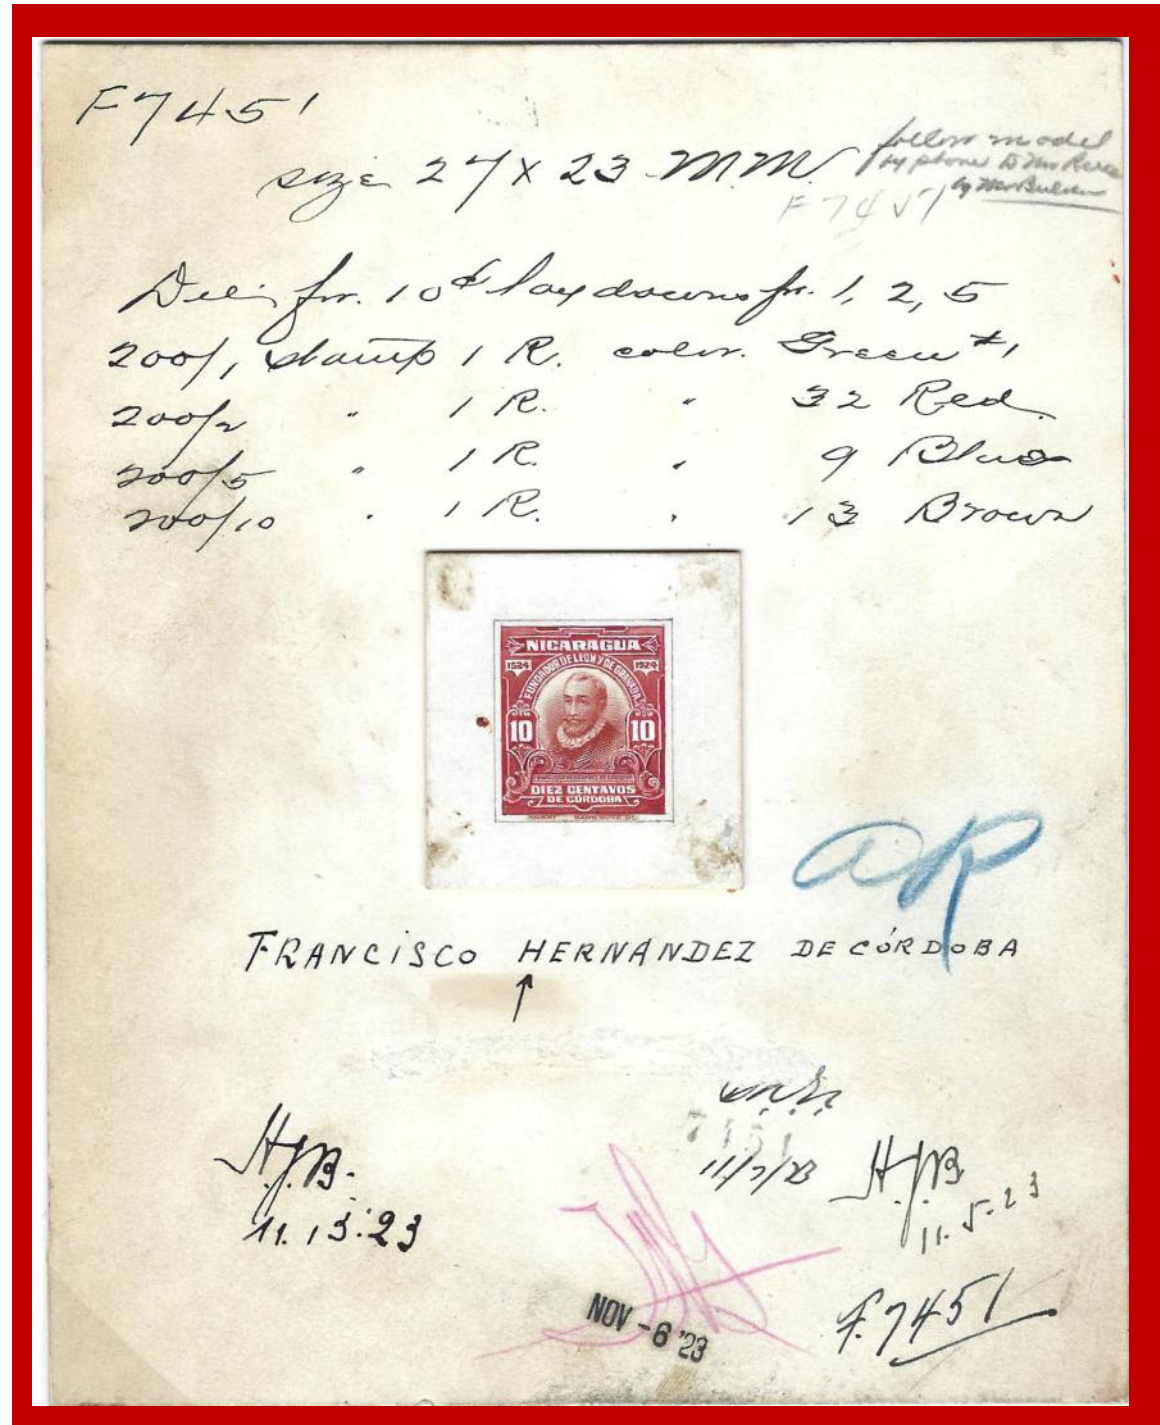 F7451
size 27 x 23 M.M.
follow model
by phone to Mr
by Mr
F7451
Die fr. 10¢ lay downs fr. 1, 2, 5
200/1 stamp 1 R. color. Green #1
200/2 " 1 R. " 32 Red.
200/5 " 1 R. " 9 Blue
200/10 " 1 R. " 13 Brown
NICARAGUA
1524 1924
FUNDADOR DE LEON Y DE GRANADA
10 10
FRANCISCO HERNANDEZ DE CORDOBA
DIEZ CENTAVOS
DE CÓRDOBA
AR
FRANCISCO HERNANDEZ DE CÓRDOBA
7151
H.J.B.
11.13.23
11/7/23
H.J.B
11.5.23
NOV -6 '23
F.7451